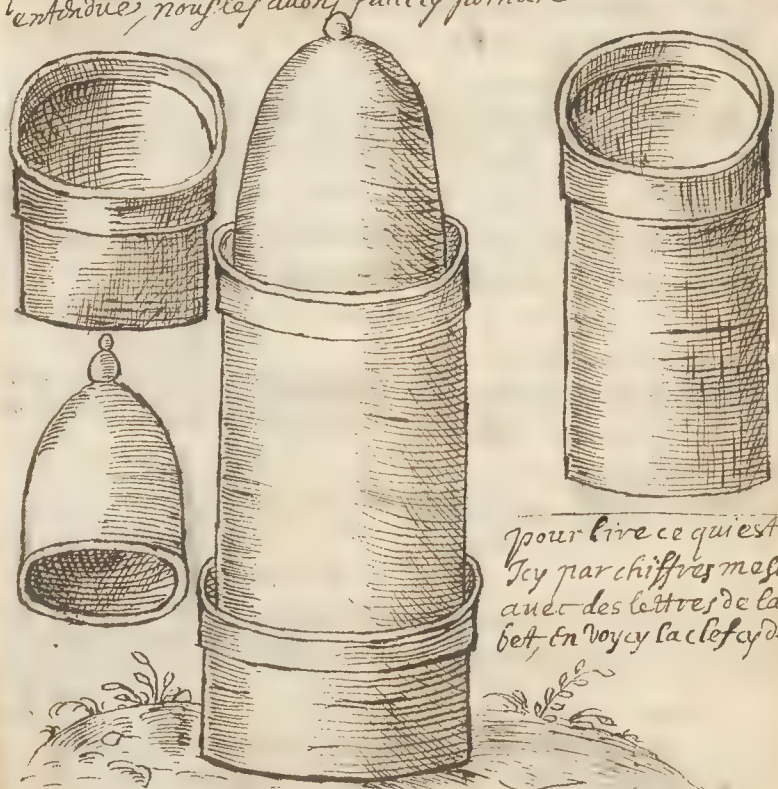 entendue, nous les auons faict cy
pour lire ce qui est
Icy par chiffres mes
auec des lettres de la
bet, En voycy la clef cy d